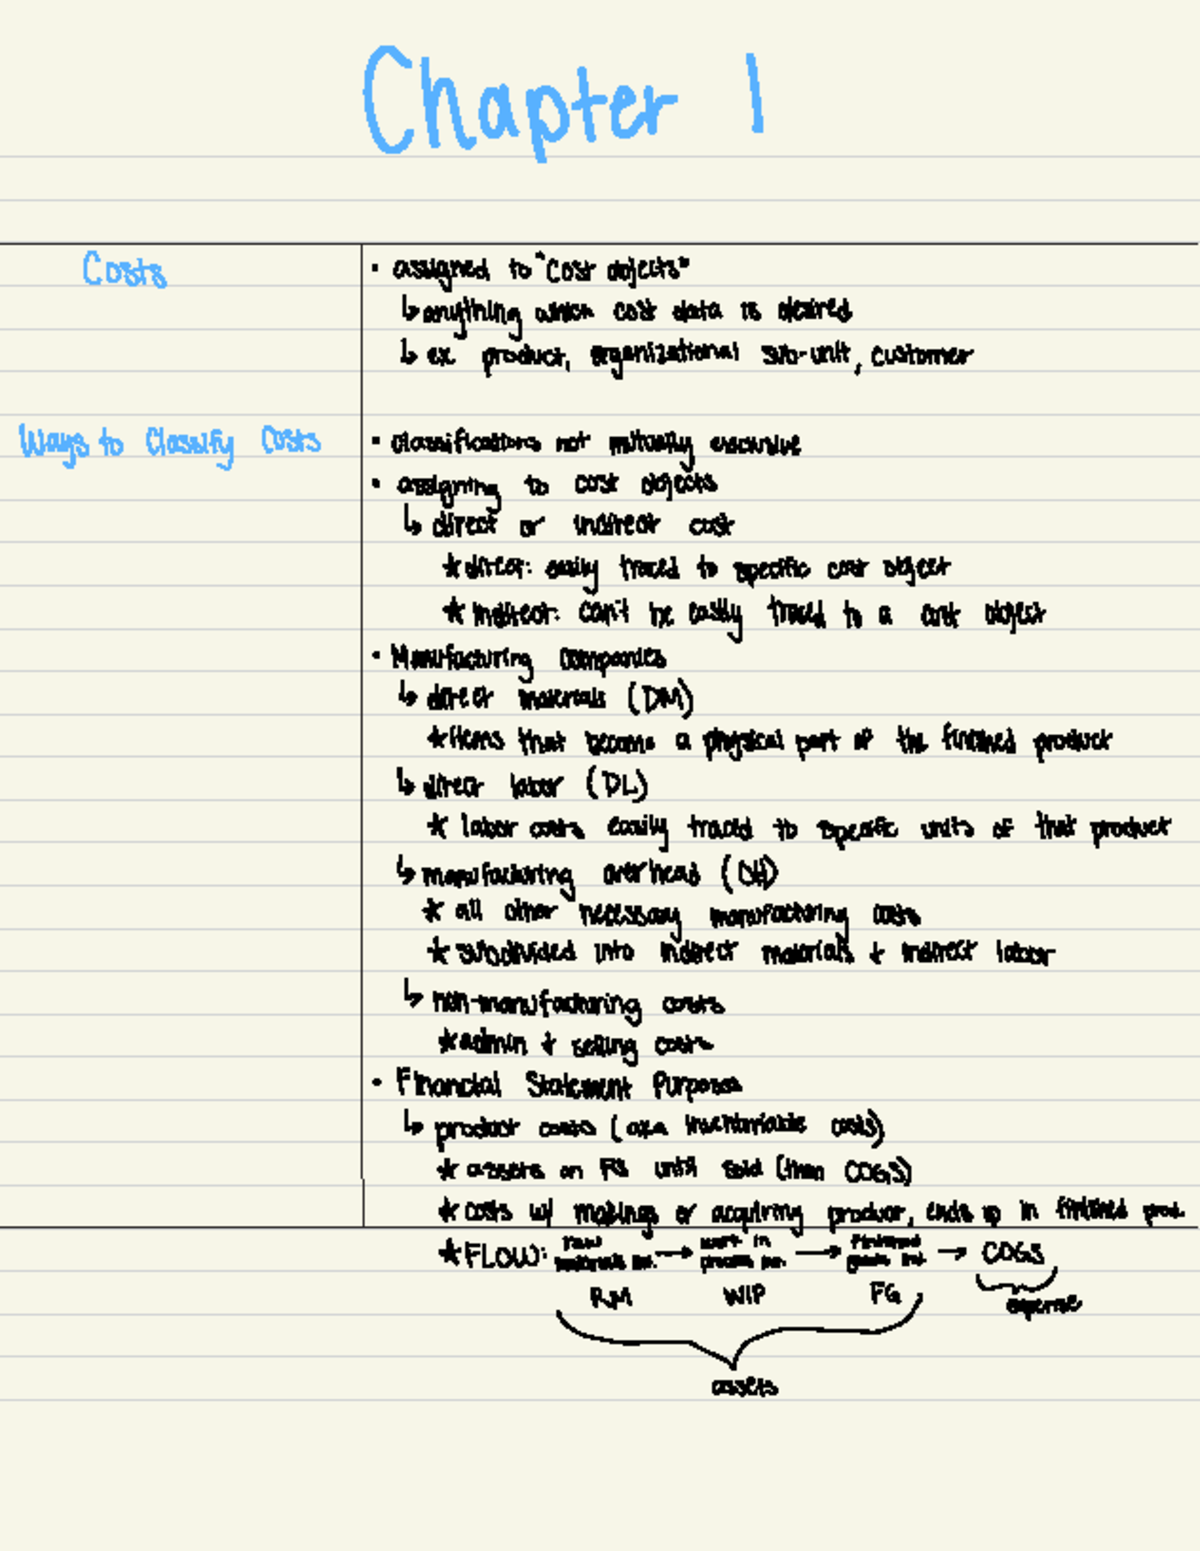 Chapter 1
Costs
• assigned to "cost objects"
↳ anything which cost data is desired
↳ ex. product, organizational sub-unit, customer
Ways to Classify Costs
• classifications not mutually exclusive
• assigning to cost objects
↳ direct or indirect cost
* direct: easily traced to specific cost object
* indirect: can't be easily traced to a cost object
• Manufacturing companies
↳ direct materials (DM)
* items that become a physical part of the finished product
↳ direct labor (DL)
* labor costs easily traced to specific units of that product
↳ manufacturing overhead (OH)
* all other necessary manufacturing costs
* subdivided into indirect materials + indirect labor
↳ non-manufacturing costs
* admin + selling costs
• Financial Statement Purposes
↳ product costs (aka inventoriable costs)
* assets on FS until sold (then COGS)
* costs w/ makings or acquiring product, ends up in finished prod.
* FLOW: raw materials inv. → work in process inv. → finished goods inv. → COGS
RM WIP FG expense
assets